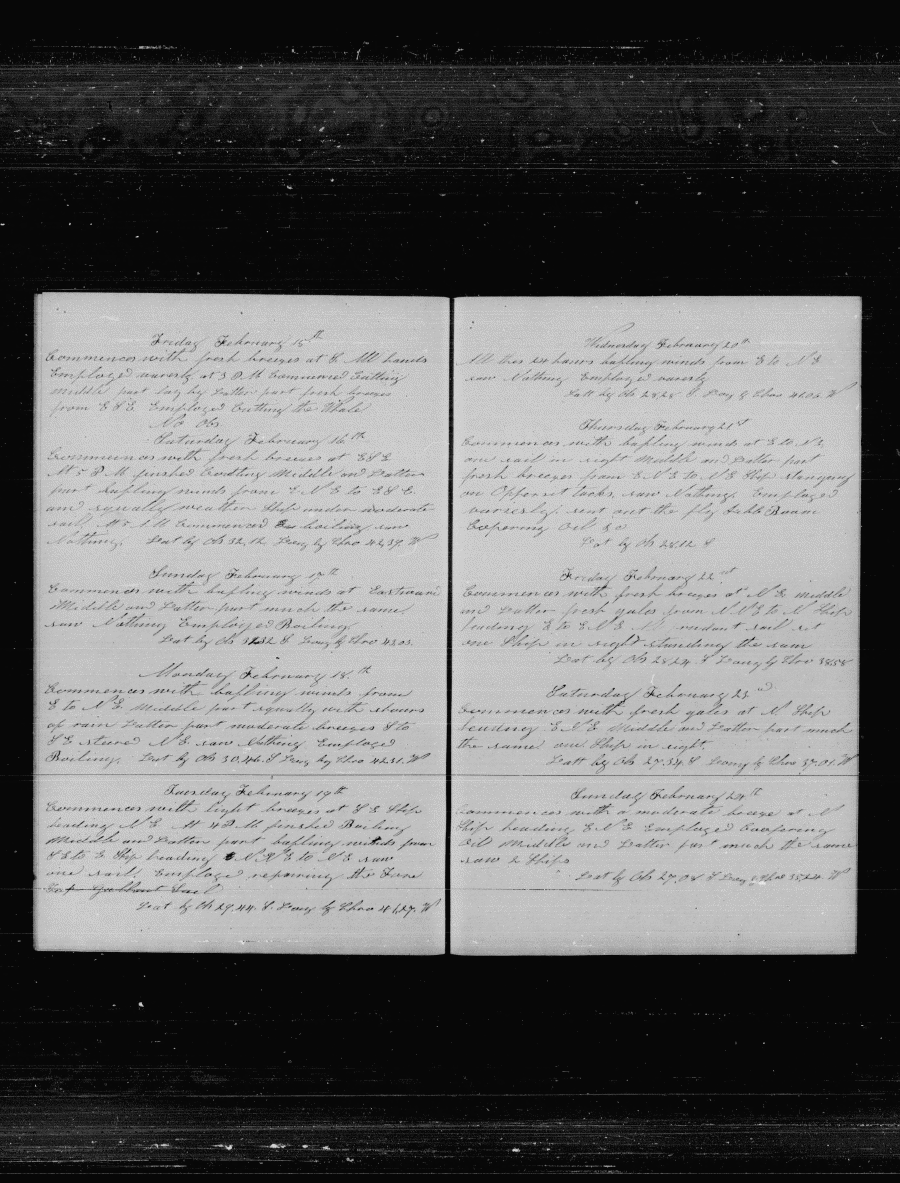 Friday February 15th
Commences with fresh breezes at E All hands
Employed variesly at 3 P.M Commenced Cutting
middle part lay by Latter part fresh breezes
from E S E Employed Cutting the Whale
No Obs
Saturday February 16th
Commences with fresh breezes at ESE
At 5 P.M finshed Cutting Middle and Latter
part bafling winds from E N E to E S E
and squally weather Ship under moderate
sail At 1 A M Commenced boiling saw
Nothing. Lat by Ob 32,12 Long by Chro 42,39. W
Sunday February 17th
Commences with bafling winds at Eastward
Middle and Latter part much the same
saw Nothing Employed Boiling
Lat by Ob 3232 S Long by Chro 43.03.
Monday February 18th
Commences with bafling winds from
E to N E. Middle part squally with showrs
of rain Latter part moderate breezes S to
S E steered N E saw Nothing Employed
Boiling. Lat by Ob 30.46. S Long by Chro 42.31. W
Tuesday February 19th
Commences with light breezes at S E Ship
heading N E At 4 P.M finshed Boiling
Middle and Latter part bafling winds from
S E to E Ship heading N.N E to N E saw
one sail Employed repairing the Fore
Top Gallant Sail
Lat by Ob 29.44. S. Long by Chro 41,27. W
Wednesday February 20th
All thes 24 hours bafling winds from E to N E
saw Nothing Employed variesly
Latt by Ob 28.28 S Long by Chro 41.02. W
Thursday February 21st
Commences with bafling winds at E to N E,
one sail in sight Middle and Latter part
fresh breezes from E N E to N E Ship
on Opperset tacks, saw Nothing. Employed
variesly. sent out the fly Jibb Boom
Coopering Oil &c
Lat by Ob 28.12 S
Friday February 22nd
Commences with fresh breezes at N E middle
and Latter fresh gales from N N E to N Ship
heading E to E N E sail set
one Ship in sight standing the same
Lat by Ob 28.24. S Long by Chro 38.58
Saturday February 23nd
Commences with fresh gales at N Ship
heading E N E Middle and Latter part much
the same one Ship in sight.
Latt by Ob 27.34. S Long by Chro 37.01. W
Sunday February 24th
Commences with a moderate breeze at N
Ship heading E N E Employed Coopering
Oil Middle and Latter part much the same
saw 2 Ships
Lat by Ob 27.08. S Long by Chro 35,24. W